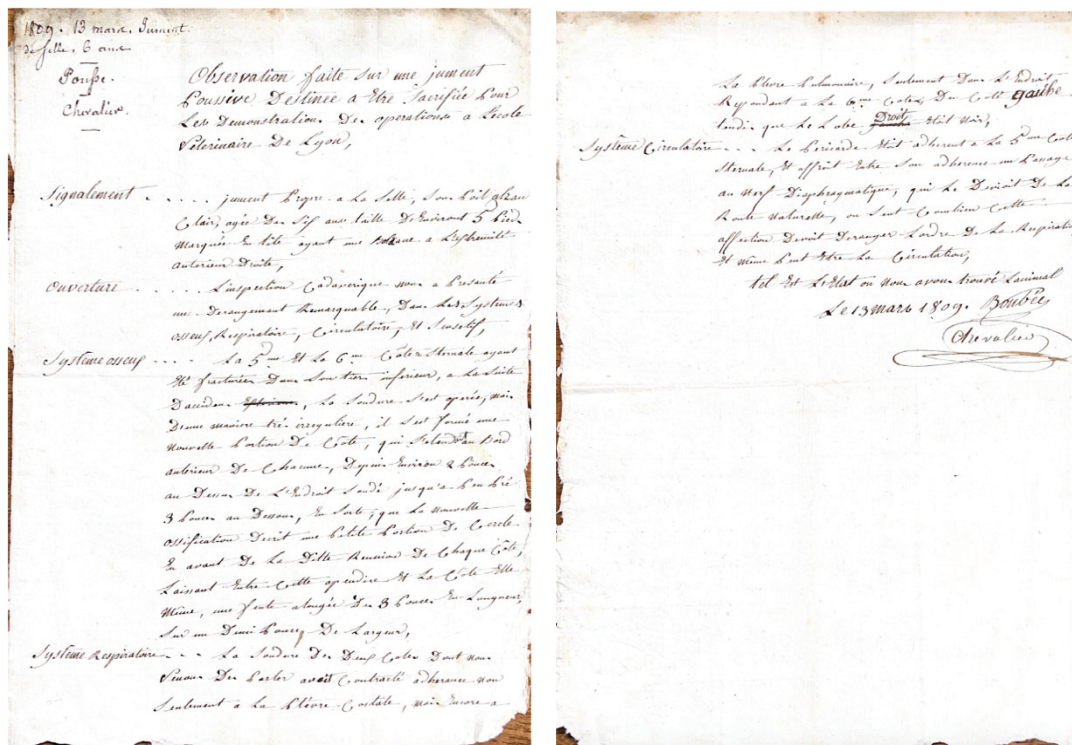 1809. 13 mars. Jument
de selle. 6 ans
Pousse.
Chevalier.
Observation faite sur une jument
Poussive Destinée a Etre Sacrifiée Pour
Les Demonstration De operations a Lecole
Veterinaire De Lyon,
Signalement . . . . . jument Propre a La Selle, Sou Poil alzan
Clair, agée De Six ans taille De Environt 5 Pied
Marquée En tête ayant une Balzane a L'Extremité
anterieur Droite,
Ouverture . . . . . L'inspection Cadaverique nous a Presenté
un Derangement Remarquable, Dans Les Systemes
osseux, Respiratoire, Circulatoire, Et Sensitif,
Système osseux . . . . La 5me Et La 6me Côtes Sternale ayant
Eté fracturées Dans Son tiers inferieur, a La Suite
Daccident , La Soudure S'est operée, mais
Deune maniere très irreguliere, il S'est formé une
nouvelle Portion De Côte, qui S'etendt au Bord
anterieur De Chacune, Depuis Environ 2 Pouces
au Dessus De L'Endroit Soudé jusqu'a Peu Prè
3 Pouces au Dessous, En Sorte, que La nouvelle
ossification Decrit une Petite Portion De Cercle
En avant De La Ditte Reunion De Chaque Côte,
Laissant Entre Cette apendice Et La Côte Elle
Même, une fente alongée De 3 Pouces En Longueur,
Sur un Demi Pouce De Largeur,
Système Respiratoire . . La Soudure Des Deux Cotes Dont nous
Venons De Parler avoit Contracté adherance non
Seulement a La Plèvre Costale, mais Encore a
La Plèvre Pulmonaire, Seulement Dans L'Endroit
Repondant a La 6me Côte, Du Coté gauche
tendis que Le Lobe Droit Etait Noir,
Système Circulatoire . . . Le Pericarde Etait adherent a La 5me Cote
Sternale, Et offrit Entre Son adherence un Passage
au Nerf Diaphragmatique, qui Le Devioit De La
Route naturelle, on Sent Combien Cette
affection Devoit Deranger Lordre De La Respiration
Et même Peut Etre La Circulation,
tel Est L'Etat ou nous avons trouvé Lanimal
Le 13 mars 1809. Boubée
Chevalier